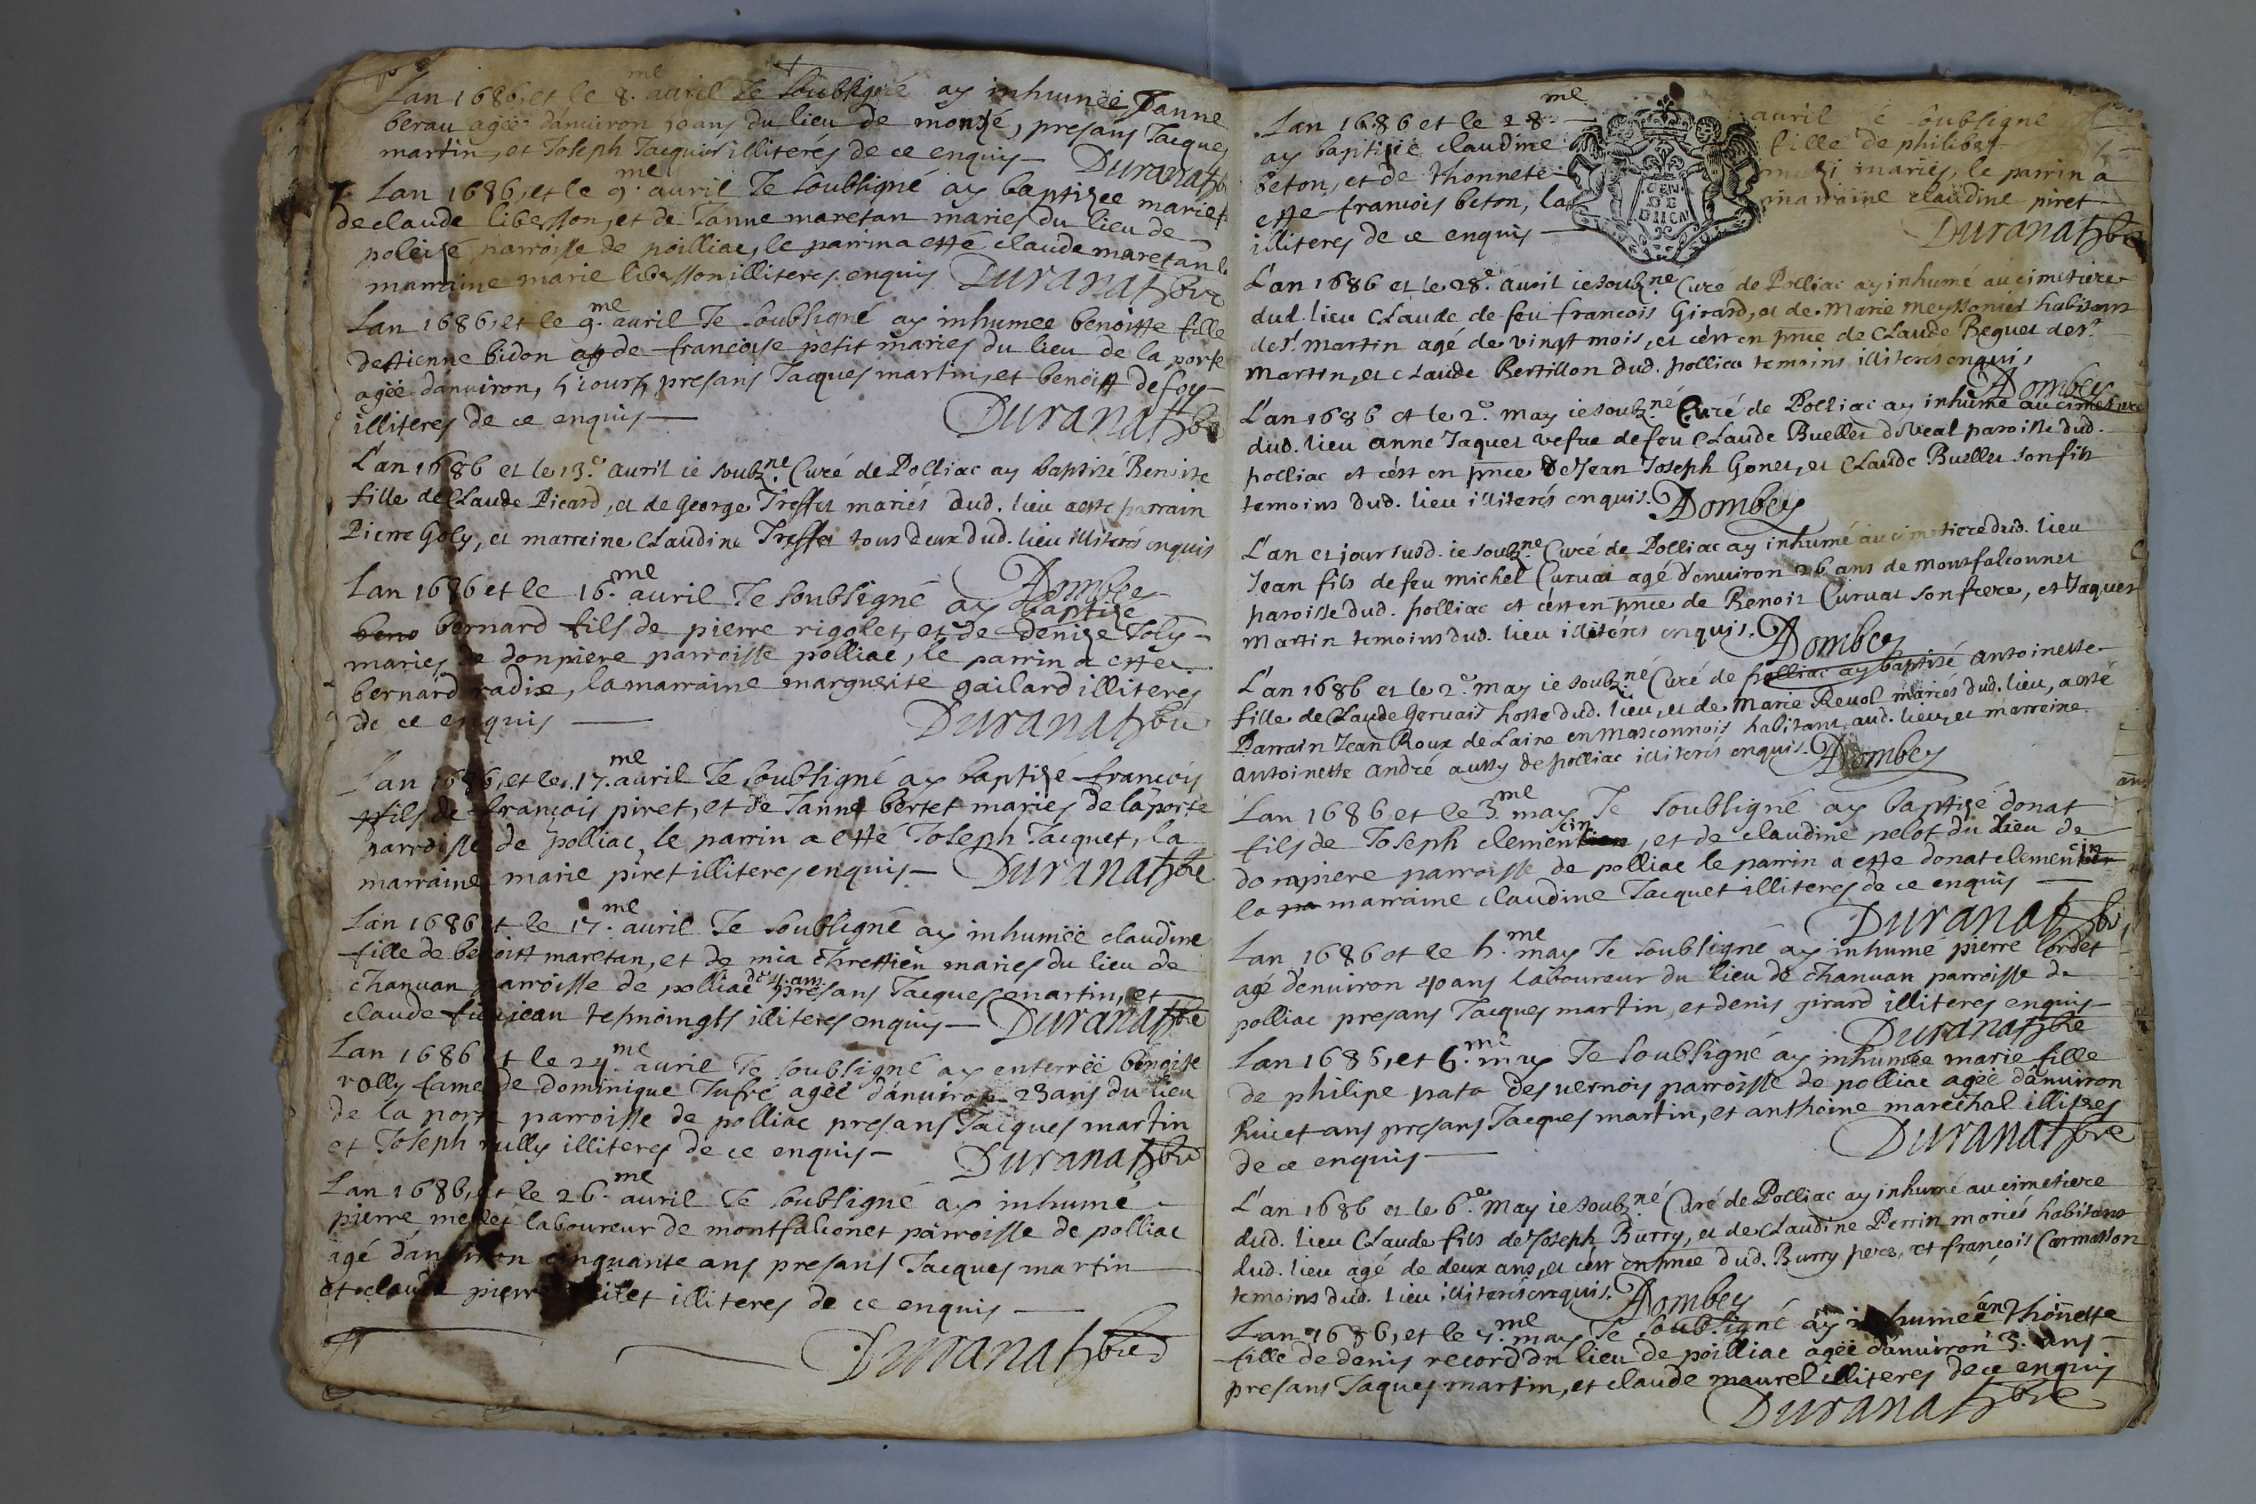 Lan 1686, et le 8.me auril Je soubsigné ay inhumëe Janne
berau agëe danuiron 50 ans du lieu de monsé, presans Jacques
martin, et Joseph Jacquier illiteres de ce enquis — Duranat pbre
Lan 1686, et le 9.me auril Je soubsigné ay baptizee mariete
de claude libesson, et de Janne maretan maries du lieu de
poleisé parroisse de poilliac, le parrin a esté claude maretan la
marraine marie libesson illiteres enquis Duranat pbre
Lan 1686, et le 9.me auril Je soubsigné ay inhumee benoitte fille
destienne bidon et de françoise petit maries du lieu de la porte
agëe danuiron, 5 iours, presans Jacques martin, et benoist defoy
illiteres de ce enquis — Duranat pbre
L'an 1686 et le 13.e auril ie soubz.ne Curé de Polliac ay baptizé Benoite
fille de Claude Picard, et de George Treffet mariés dud. lieu a esté parrain
Pierre Goly, et marreine Claudine Treffet tous deux dud. lieu illiterés enquis
ADombey
Lan 1686 et le 16.me auril Je soubsigné ay baptize
beno bernard fils de pierre rigolet, et de denize Joly
maries de donpiere parroisse polliac, le parrin a esté
bernard radix, la marraine marguerite gailard illiteres
de ce enquis — Duranat pbre
Lan 1686, et le .17.me auril Je soubsigné ay baptize françois
fils de françois piret, et de Janne bertet maries de la porte
parroisse de polliac, le parrin a esté Joseph Jacquet, la
marraine marie piret illiteres enquis — Duranat pbre
Lan 1686 et le 17.me auril Je soubsigné ay inhumëe claudine
fille de benoist maretan, et de mia chrestien maries du lieu de
chanuan parroisse de polliac de 4. an. presans Jacques martin, et
claude jean tesmoingts illiteres enquis — Duranat pbre
Lan 1686 et le 24.me auril Je soubsigné ay enterrëe benoiste
rolly fame de dominique Jufré agëe danuiron 23 ans du lieu
de la porte parroisse de polliac presans Jacques martin
et Joseph rully illiteres de ce enquis — Duranat pbre
Lan 1686, et le 26.me auril Je soubsigné ay inhumé
pierre mellet laboureur de montfalconet parroisse de polliac
agé danuiron cinquante ans presans Jacques martin
et claude pierre illiteres de ce enquis —
Duranat pbre
Lan 1686 et le 28.me auril Je soubsigné
ay baptizée claudine fille de philibert
beton, et de thonnete maries, le parrin a
esté francois beton, la marraine claudine piret
illiteres de ce enquis — Duranat pbre
GEN DE DIICN
L'an 1686 et le 28.e auril ie soubz.ne Curé de Polliac ay inhumé au cimetiere
dud. lieu Claude de feu francois Girard, et de Marie Meyssoniet habitant
de St. Martin agé de vingt mois, et c'est en pnce de Claude Requet de St.
Martin, et Claude Bertillon dud. polliac temoins illiterés enquis
ADombey
L'an 1686 et le 2.e May ie soubz.né Curé de Polliac ay inhumé au cimetiere
dud. lieu Anne Jaquet vefue de feu Claude Buellet doveal paroisse dud.
polliac et c'est en pnce de Jean Joseph Gonet, et Claude Buellet son fils
temoins dud. lieu illiterés enquis. ADombey
L'an et jour susd. ie soubz.ne Curé de Polliac ay inhumé au cimetiere dud. lieu
Jean fils de feu Michel Curuat agé d'enuiron 26 ans de Montfalconnet
paroisse dud. polliac et c'est en pnce de Benoit Curuat son frere, et Jaques
Martin temoins dud. lieu illiterés enquis. ADombey
L'an 1686 et le 2.e May ie soubz.né Curé de polliac ay baptizé Antoinette
fille de Claude Geruais hoste dud. lieu, et de Marie Reuol mariés dud. lieu, a esté
Parrain Jean Roux de Laire en Masconnois habitant aud. lieu, et marreine
Antoinette André aussy de polliac illiterés enquis. ADombey
Lan 1686 et le 3.me may Je soubsigné ay baptizé donat
fils de Joseph clemencin, et de claudine pelot du lieu de
dompiere parroisse de polliac le parrin a esté donat clemencin
la marraine claudine Jacquet illiteres de ce enquis —
Duranat pbre
Lan 1686 et le 5.me may Je soubsigné ay inhumé pierre bordet
agé denuiron 40 ans laboureur du lieu de chanuan parroisse de
polliac presans Jacques martin, et denis girard illiteres enquis
Duranat pbre
Lan 1686, et 6.me may Je soubsigné ay inhumëe marie fille
de philipe pata des uernois parroisse de polliac agëe danuiron
huict ans presans Jacques martin, et anthoine marechal illiteres
de ce enquis — Duranat pbre
L'an 1686 et le 6.e May ie soubz.né Curé de Polliac ay inhumé au cimetiere
dud. lieu Claude fils de Joseph Burry, et de Claudine Perrin mariés habitans
dud. lieu agé de deux ans, et c'est en pnce dud. Burry pere, et françois Carmasson
temoins dud. lieu illiterés enquis. ADombey
Lan 1686, et le 7.me may Je soubsigné ay inhumëe anthoinette
fille de denis record du lieu de poilliac agëe danuiron 3. ans
presans Jaques martin, et claude maurel illiteres de ce enquis
Duranat pbre